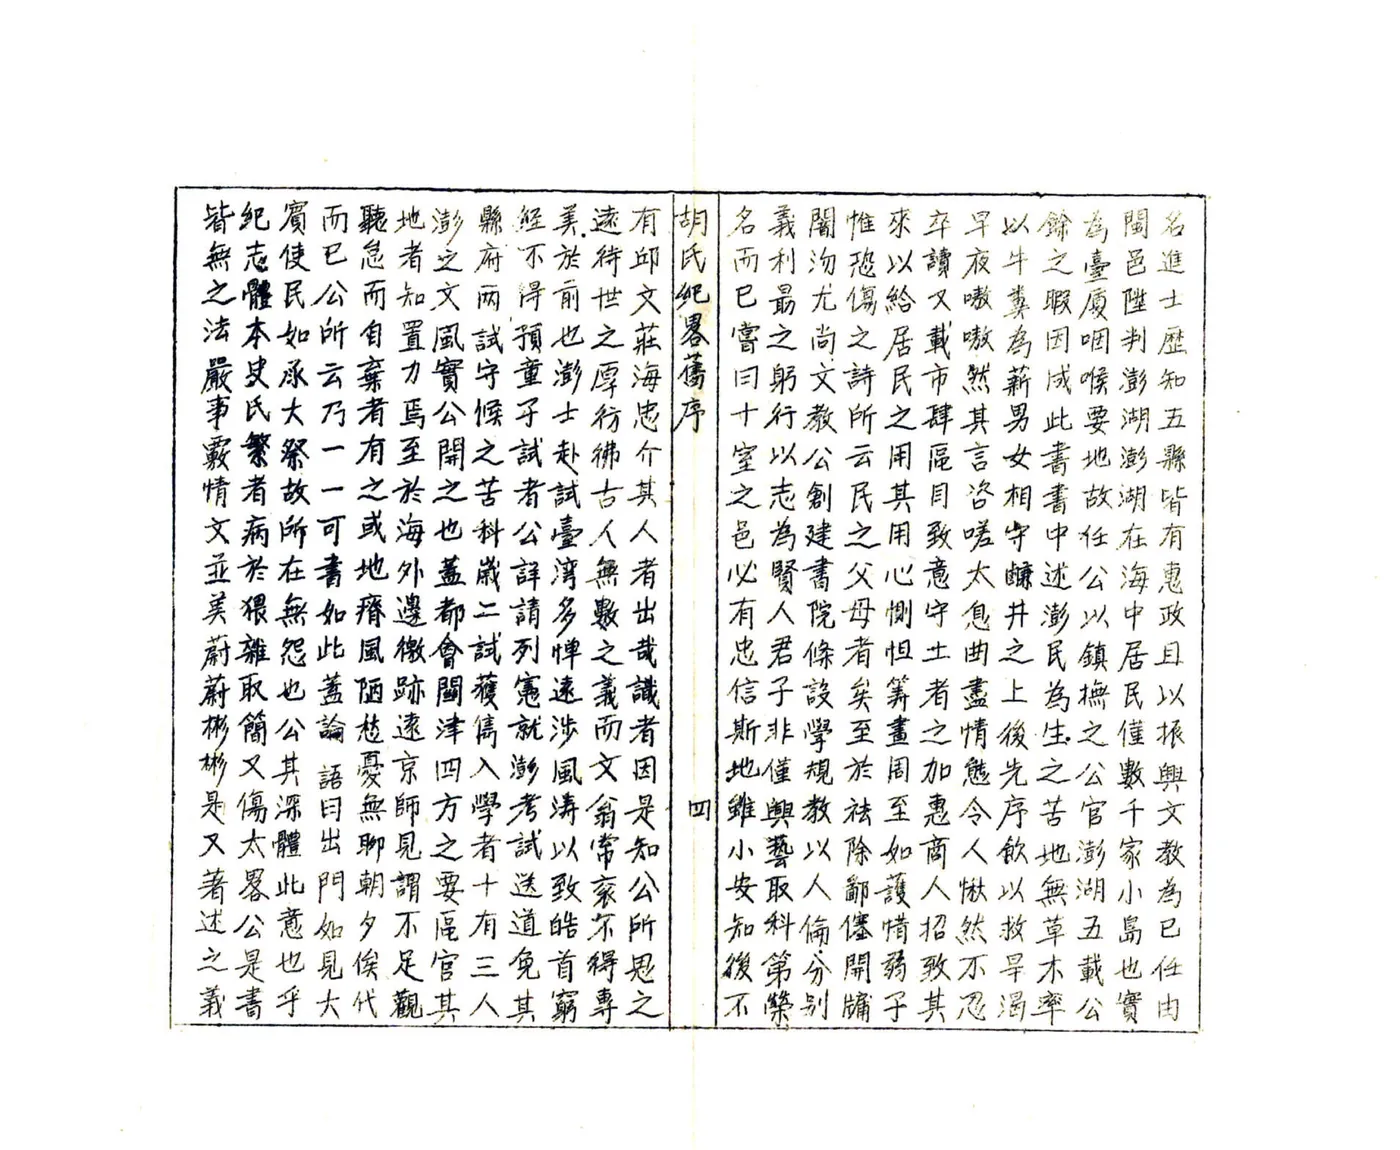 名進士歷知五縣皆有惠政且以振興文教為己任由
閩邑陞判澎湖澎湖在海中居民僅數千家小島也實
為臺廈咽喉要地故任公以鎮撫之公官澎湖五載公
餘之暇因成此書書中述澎民為生之苦地無草木率
以牛糞為薪男女相守鹹井之上後先序飲以救旱渴
早夜嗷嗷然其言咨嗟太息曲盡情態令人愀然不忍
卒讀又載市肆區目致意守土者之加惠商人招致其
來以給居民之用其用心惻怛筭畫周至如護惜弱子
惟恐傷之詩所云民之父母者矣至於祛除鄙僿開牖
闇汋尤尚文教公創建書院條設學規教以人倫分別
義利最之躬行以志為賢人君子非僅興藝取科第榮
名而已嘗曰十室之邑必有忠信斯地雖小安知後不
胡氏紀畧舊序 四
有邱文莊海忠介其人者出哉識者因是知公所思之
遠待世之厚彷彿古人無數之義而文翁常袞不得專
美於前也澎士赴試臺灣多憚遠涉風濤以致皓首窮
經不得預童子試者公詳請列憲就澎考試送道免其
縣府兩試守候之苦科歲二試獲雋入學者十有三人
澎之文風實公開之也蓋都會關津四方之要區官其
地者知置力焉至於海外邊徼跡遠京師見謂不足觀
聽怠而自棄者有之或地瘠風陋愁憂無聊朝夕俟代
而已公所云乃一一可書如此蓋論 語曰出門如見大
賓使民如承大祭故所在無怨也公其深體此意也乎
紀志體本史氏繁者病於猥雜取簡又傷太畧公是書
皆無之法嚴事覈情文並美蔚蔚彬彬是又著述之義